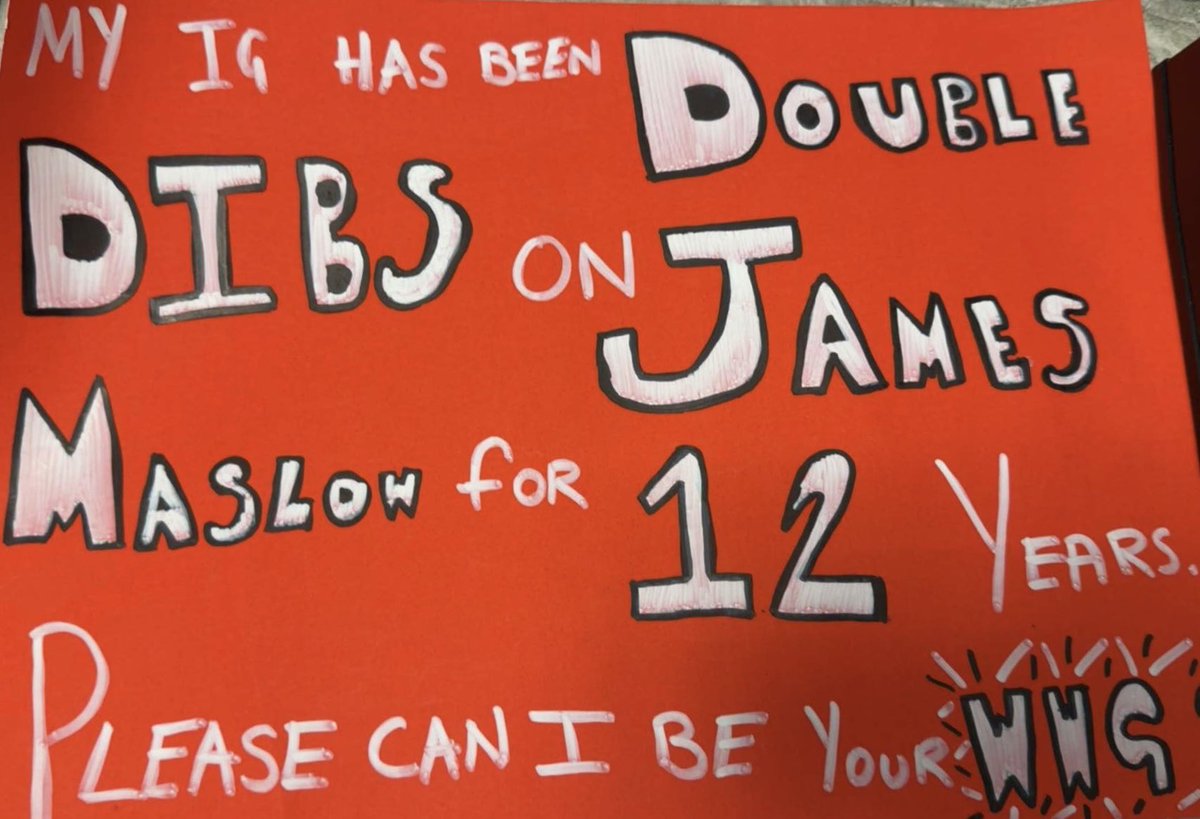 MY IG HAS BEEN DOUBLE
DIBS ON JAMES
MASLOW FOR 12 YEARS.
PLEASE CAN I BE YOUR WWG